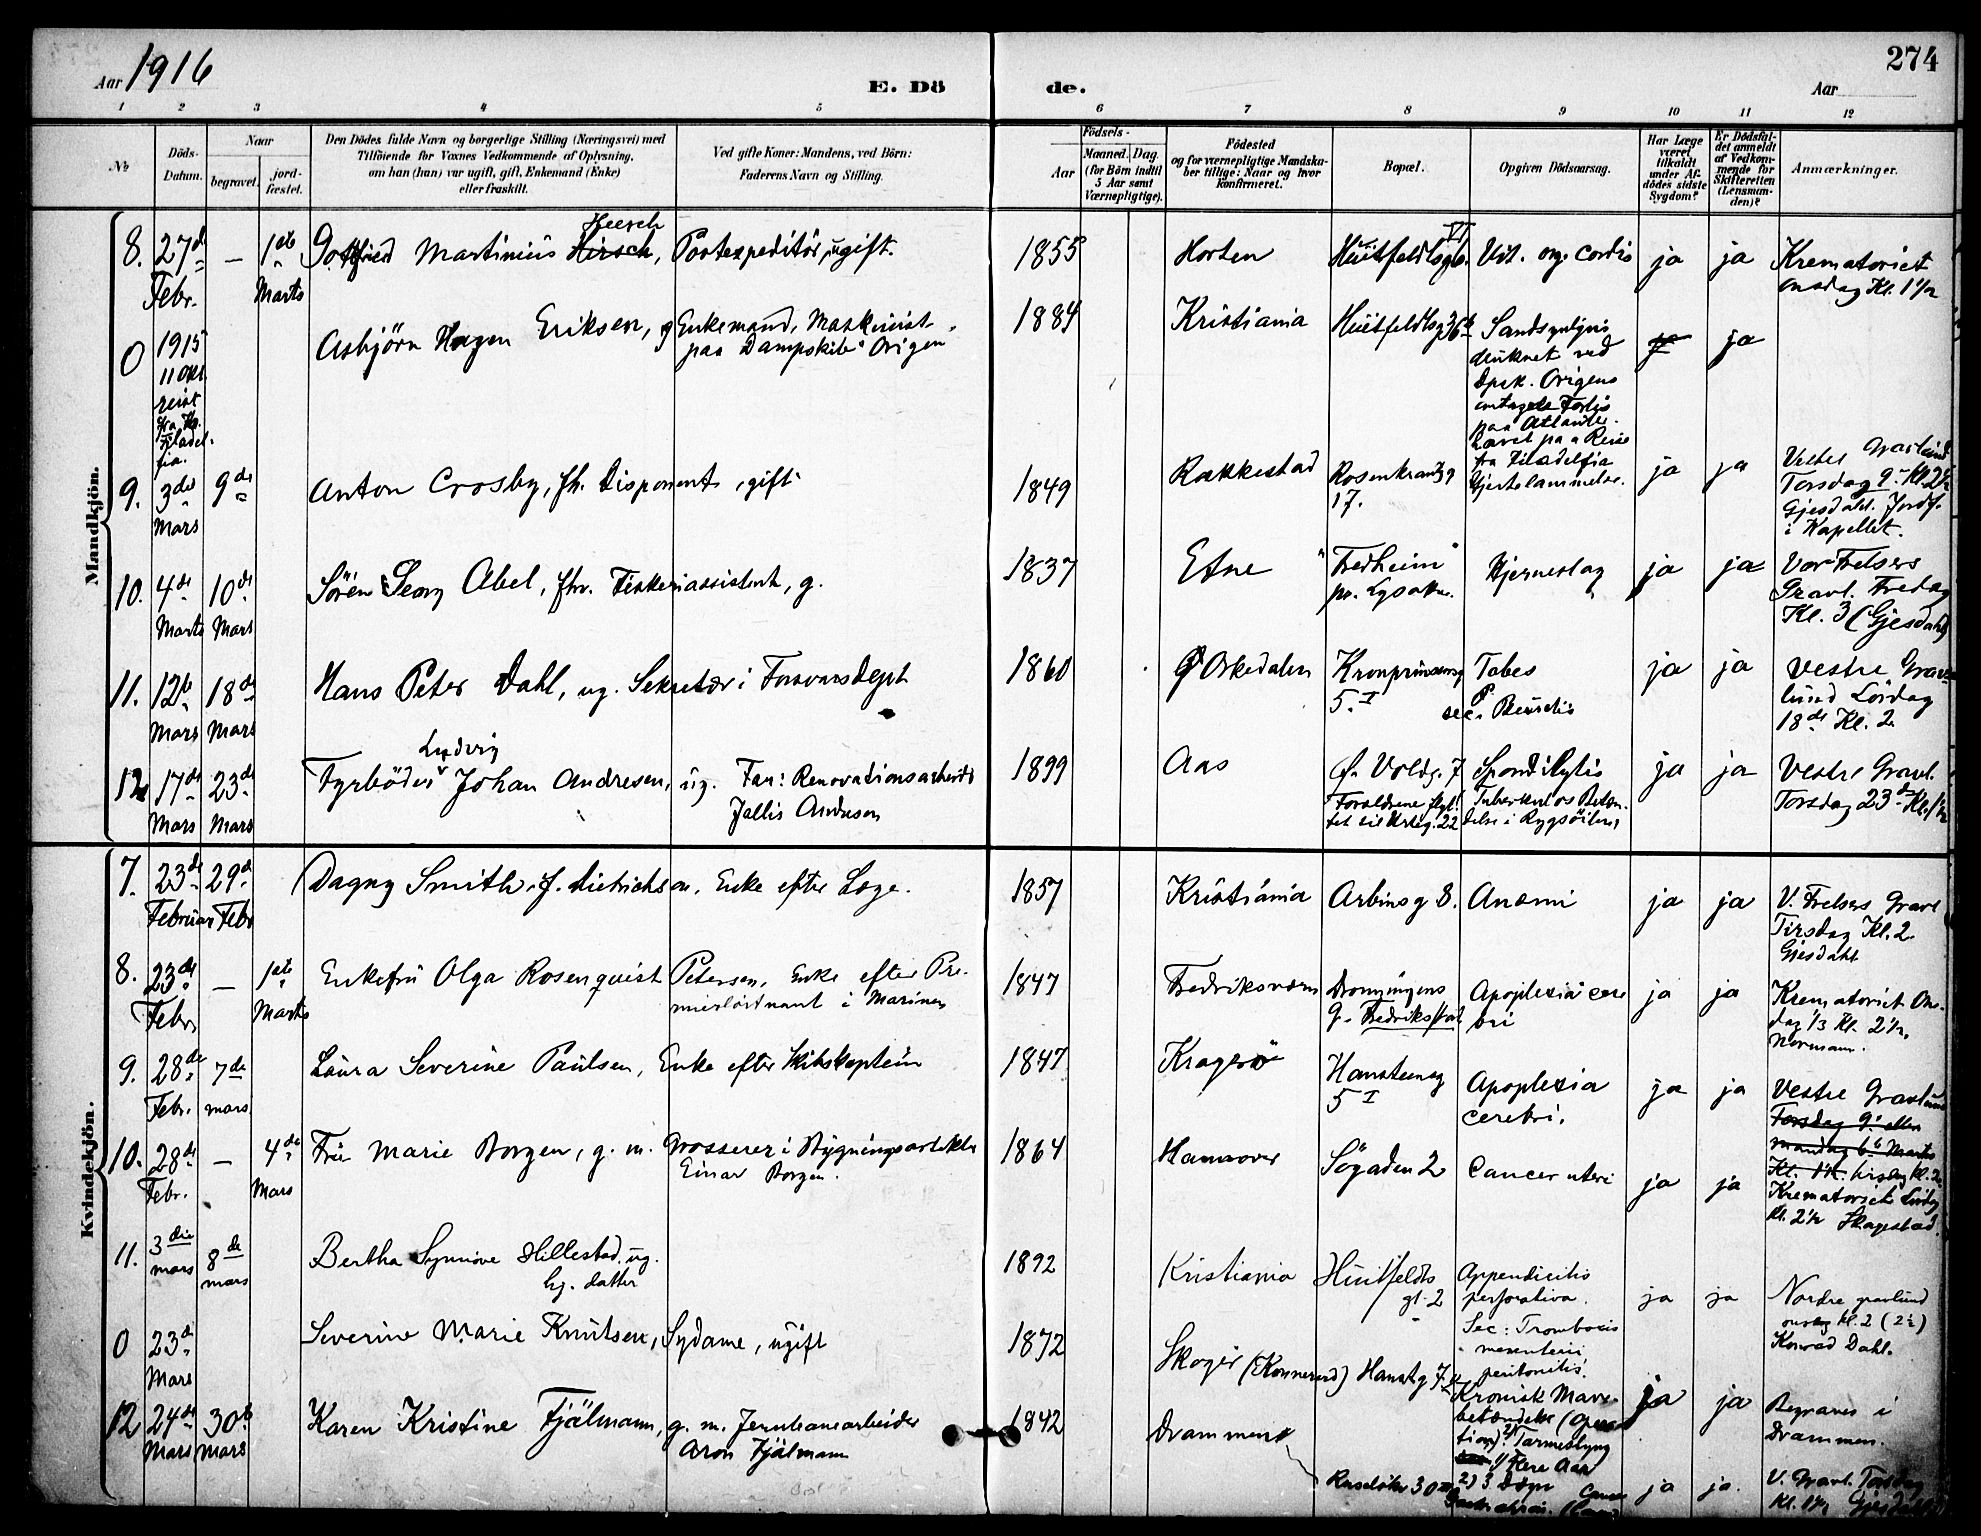 Aar 1916
E. Dö de.
Aar
274
1 2 3 4 5 6 7 8 9 10 11 12
No
Döds-Datum.
Naar
begravet.
jord-fæstet.
Den Dödes fulde Navn og borgerlige Stilling (Næringsvei) med
Tilföiende for Voxnes Vedkommende af Oplysning,
om han (hun) var ugift, gift, Enkemand (Enke)
eller fraskilt.
Ved gifte Koner: Mandens, ved Börn:
Faderens Navn og Stilling.
Födsels-
Aar
Maaned. Dag.
(for Börn indtil
5 Aar samt
Værnepligtige).
Födested
og for værnepligtige Mandska-
ber tillige: Naar og hvor
konfirmeret.
Bopæl.
Opgiven Dödsaarsag.
Har Læge
været
tilkaldt
under Af-
dödes sidste
Sygdom?
Er Dödsfal-
det anmeldt
af Vedkom-
mende for
Skifteretten
(Lensman-
den)?
Anmærkninger.
Mandkjön.
8. 27de Febr. — 1ste Marts Gottfried Martinius Hirsch Heesch, Postexpeditör, ugift. 1855 Horten Huitfeldtsg 6. VI Vit. org. cordis ja ja Krematoriet
onsdag Kl. 1 1/2
0 1915 11 Okt. reist fra Filadelfia. Asbjörn Hagen Eriksen, Enkemand, Maskinist
paa Dampskib "Origen" 1884 Kristiania Huitfeldtsg 36b Sandsynligvis
druknet ved
Dpsk. Origens
paa Atlanter-
havet paa Reise
fra Filadelfia ja ja
9. 3de Mars 9de Anton Crosby, fh. Disponent, gift 1849 Rakkestad Rosenkrantzg
17. Hjertelammelse. ja ja Vestre Gravlund
Torsdag 9de Kl. 2 1/2
Gjesdahl. Jordf.
i Kapellet.
10. 4de Marts 10de Mars Sören Georg Abel, fhv. Fiskeriassistent, g. 1837 Etne "Fredheim"
pr. Lysaker. Hjerneslag ja ja Vor Frelsers
Gravl. Fredag
Kl. 3 (Gjesdahl)
11. 12te Mars 18de Mars Hans Peter Dahl, ug. Sekretær i Forsvarsdept 1860 Orkedalen Kronprinsensg
5. I Tabes
sec. Pleuritis ja ja Vestre Grav-
lund Lördag
18de Kl. 2
12. 17de Mars 23de Mars Fyrböder Ludvig Johan Andresen, ug. Far: Renovationsarbeider
Andresen 1899 Aas Ø. Voldg. 7
Forældrene flyt-
tet til Urteg. 22 Spondilytis
Tuberkulös Beten-
delse i Rygsöilen, ja ja Vestre Gravl.
Torsdag 23de Kl. 1 1/2
Kvindekjön.
7. 23de Februar 29de Febr Dagny Smith, f. Dietrichson, Enke efter Læge. 1857 Kristiania Arbinsg 8. Anæmi ja ja V. Frelsers Gravl
Tirsdag Kl. 2
Gjesdahl
8. 23de Febr. — 1ste Marts Enkefru Olga Rosenquist Petersen, Enke efter Pre-
mierlöitnant i Marinen 1847 Fredriksværn Dronningens
g. Fredrikstad Apoplexia cere
bri ja ja Krematoriet Ons-
dag 1/3 Kl. 2 1/2.
Normann.
9. 28de Febr. 7de mars Laura Severine Paulsen, Enke efter Skibskaptein 1847 Kragerö Hansteensg
5 I Apoplexia
cerebri. ja ja Vestre Gravlund
Torsdag 9. eller
mandag 6te Marts
tirsdag kl. 2
10. 28de Febr. — 4de Mars Fru Marie Borgen, g. m. Grosserer i Bygningsartikler
Einar Borgen. 1864 Hannover Sögaden 2 Cancer uteri ja ja Krematoriet Lördag
Kl. 2 1/2 Skagestad.
11. 3die mars 8de mars Bertha Synnöve Hillestad, ug.
hj. datter 1892 Kristiania Huitfeldts
gt. 2 Appendicitis
perforativa.
Sec: Trombosis
mesenterii
peritonitis. ja ja Nordre gravlund
onsdag kl. 2 (2 1/2)
Konrad Dahl.
0 23de Mars Severine Marie Knutsen, Sydame, ugift 1872 Skoger (Konnerud) Hanstg 7 Kronisk Mave-
betændelse (Opera-
tion). Tarmeslyng ja ja Begraves i
Drammen.
12 24de Mars 30te Mars Karen Kristine Fjälmann, g. m. Jernbanearbeider
Aron Fjälmann 1842 Drammen Ruselökv 30 1) Flere Aar
2) 3 Dögn Cancer ja ja. V. Gravl. Torsdag
Kl. 1 1/2 Gjesdahl